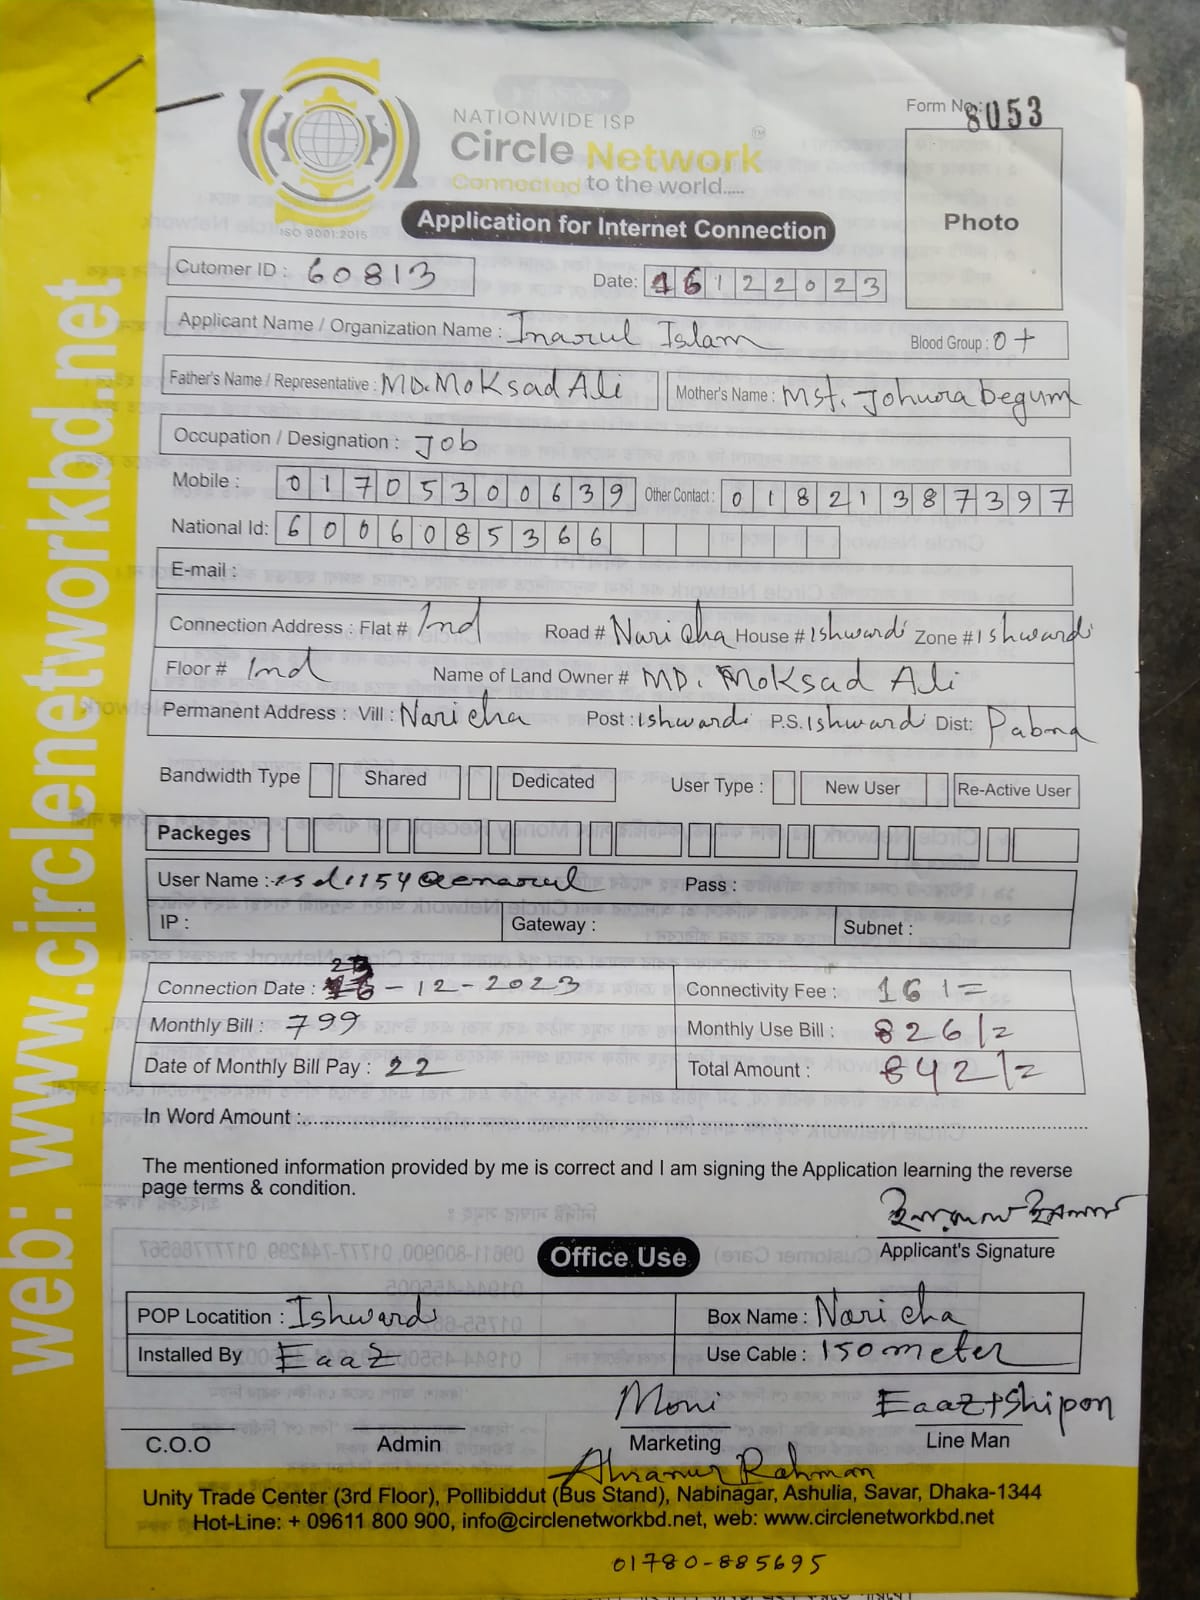 NATIONWIDE ISP
Circle Network™
Connected to the world.....
ISO 9001:2015
Form No.: 8053
Photo
Application for Internet Connection
Cutomer ID : 60813
Date: 16122023
Applicant Name / Organization Name : Inarul Islam Blood Group : O+
Father's Name / Representative : MD. Moksad Ali Mother's Name : Mst. Johura begum
Occupation / Designation : Job
Mobile : 01705300639 Other Contact : 01821387397
National Id: 6006085366
E-mail :
Connection Address : Flat # Ind Road # Naricha House # Ishwardi Zone # Ishwardi
Floor # Ind Name of Land Owner # MD. Moksad Ali
Permanent Address : Vill : Naricha Post : Ishwardi P.S. Ishwardi Dist: Pabna
Bandwidth Type Shared Dedicated User Type : New User Re-Active User
Packeges
User Name : isd1154@enarul Pass :
IP : Gateway : Subnet :
Connection Date : 23-12-2023 Connectivity Fee : 16/=
Monthly Bill : 799 Monthly Use Bill : 826/=
Date of Monthly Bill Pay : 22 Total Amount : 842/=
In Word Amount :
The mentioned information provided by me is correct and I am signing the Application learning the reverse
page terms & condition.
Applicant's Signature
Office Use
POP Locatition : Ishwardi Box Name : Naricha
Installed By EaaZ Use Cable : 150 meter
Moni EaaZ+Shipon
C.O.O Admin Marketing Line Man
Rahman
Unity Trade Center (3rd Floor), Pollibiddut (Bus Stand), Nabinagar, Ashulia, Savar, Dhaka-1344
Hot-Line: + 09611 800 900, info@circlenetworkbd.net, web: www.circlenetworkbd.net
01780-885695
web: www.circlenetworkbd.net